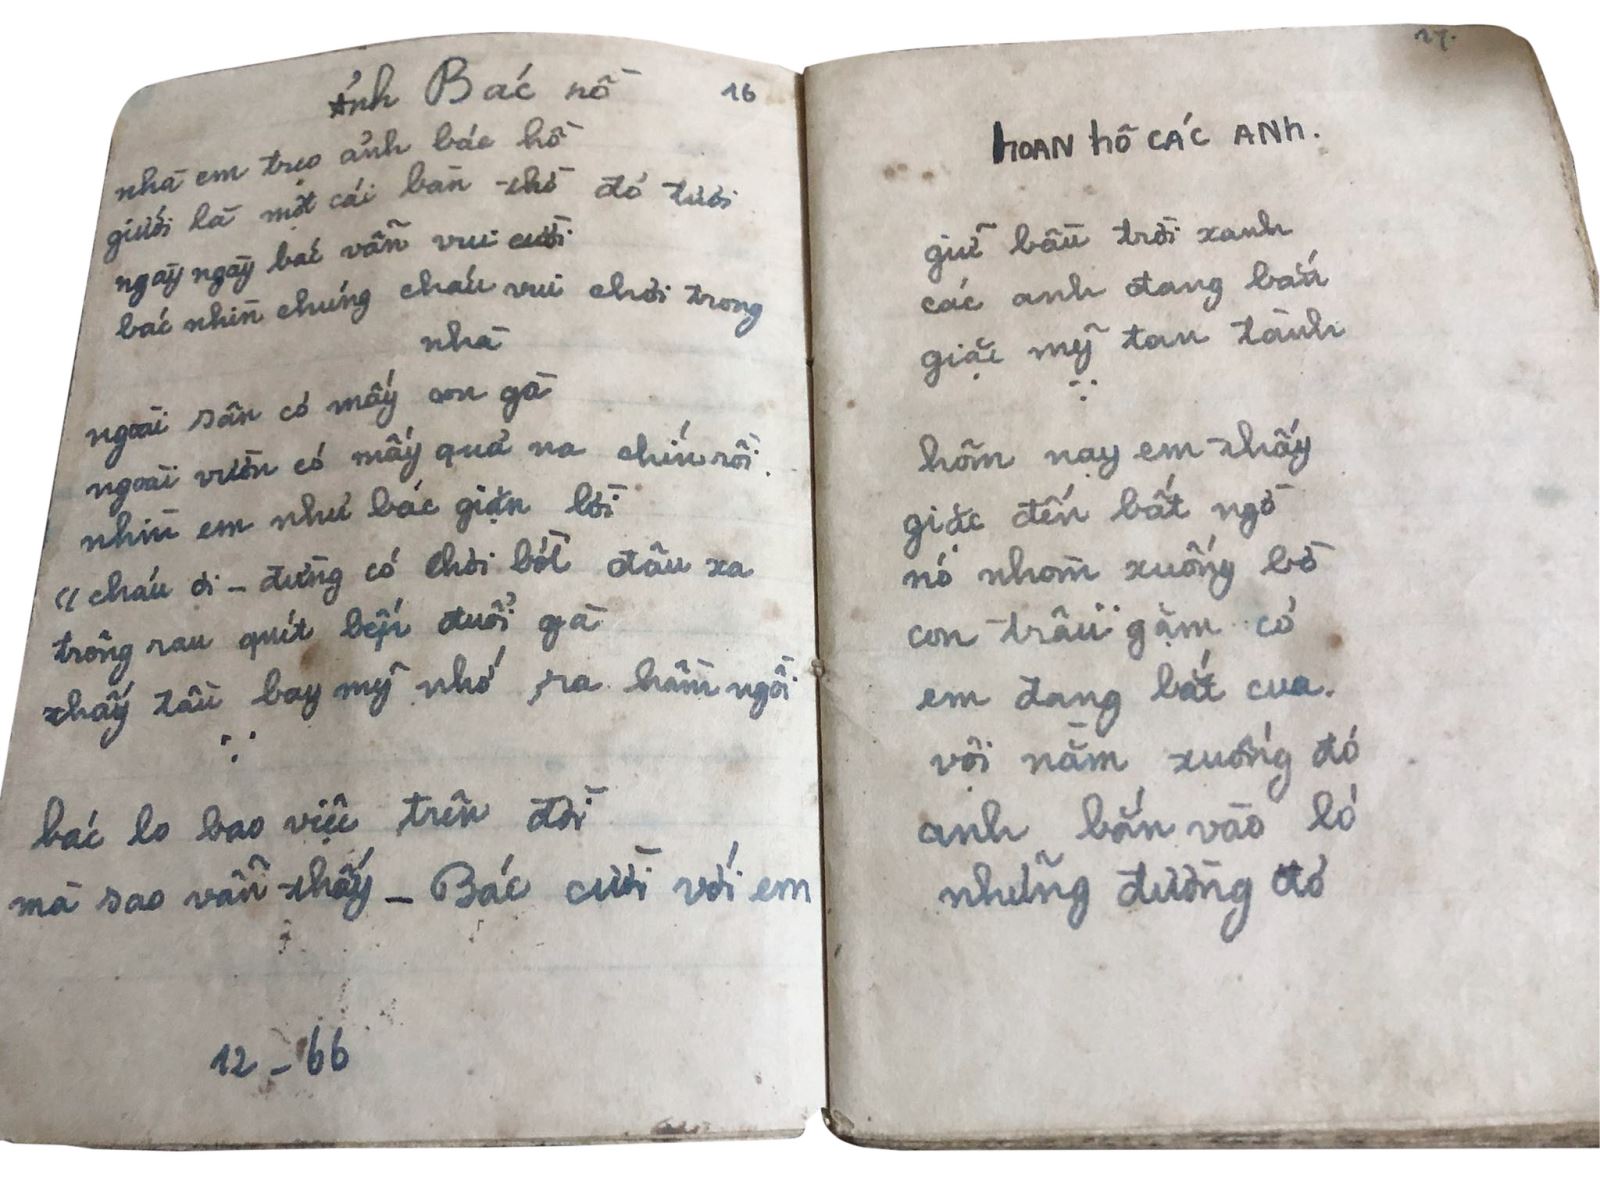 Ảnh Bác hồ
16
nhà em treo ảnh bác hồ
giưới là một cái bàn thờ đỏ tươi
ngày ngày bác vẫn vui cười
bác nhìn chúng cháu vui chơi trong
nhà
ngoài sân có mấy con gà
ngoài vườn có mấy quả na chín rồi.
nhìn em như bác giặn lời
"cháu ơi - đừng có chơi bời đâu xa
trồng rau quét bếp đuổi gà
thấy tầu bay mỹ nhớ ra hầm ngồi
bác lo bao việc trên đời
mà sao vẫn thấy - Bác cười với em
12-66
27.
HOAN HÔ CÁC ANH.
giữ bầu trời xanh
các anh đang bắn
giặc mỹ tan tành
hôm nay em thấy
giặc đến bất ngờ
nó nhòm xuống bờ
con trâu gặm cỏ
em đang bắt cua.
vội nằm xuống đó
anh bắn vào ló
những đường đỏ